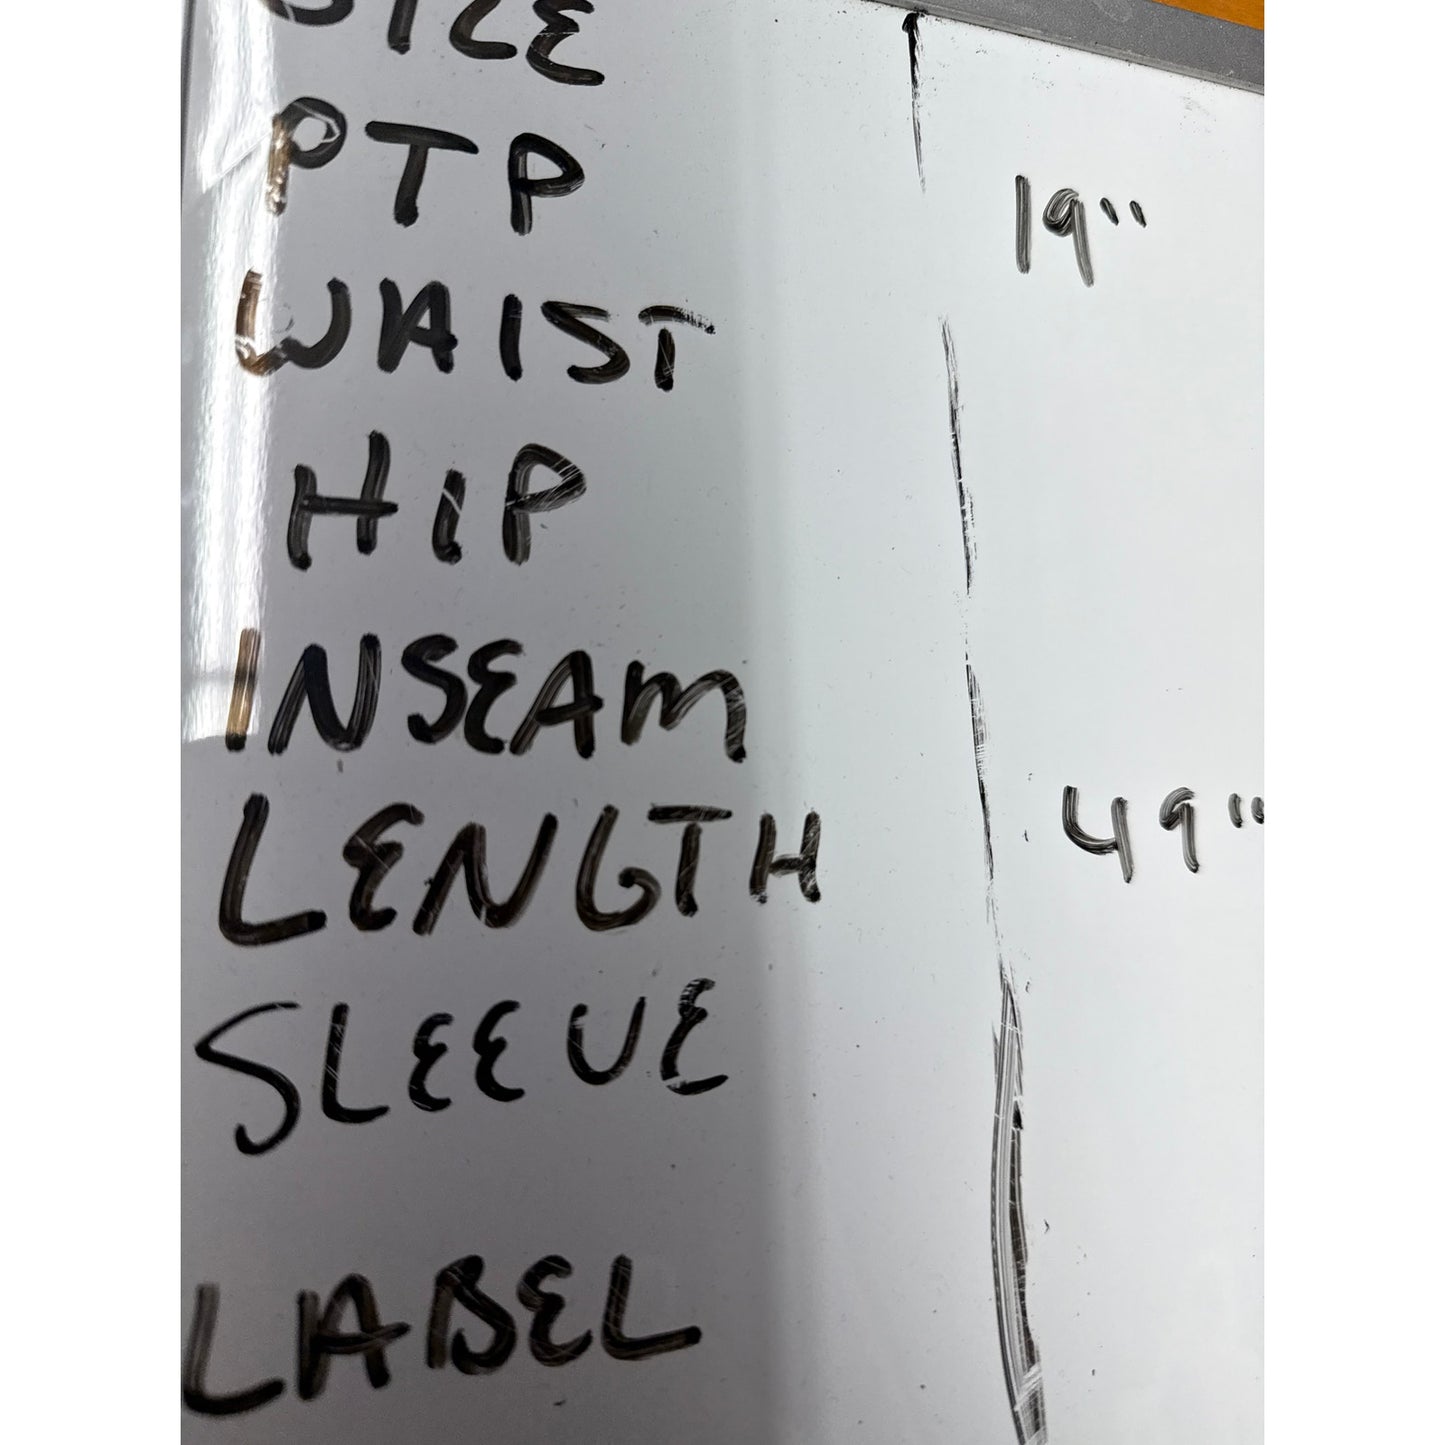 SIZE
PTP 19"
WAIST
HIP
INSEAM
LENGTH 49"
SLEEVE
LABEL